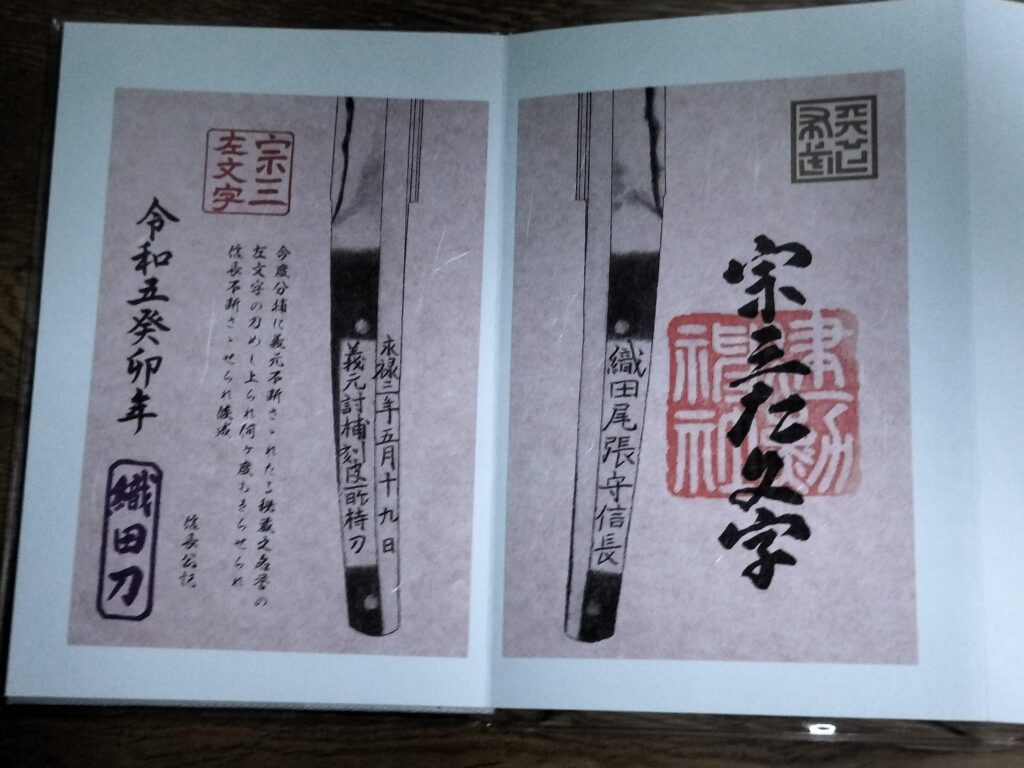 天下
布武
宗三左文字
建勲
神社
織田尾張守信長
永禄三年五月十九日
義元討捕刻彼所持刀
宗三
左文字
今度分捕に義元不断さゝれたる秘蔵之名誉の
左文字の刀めし上られ何ヶ度もきらせられ
信長不断さゝせられ候也
信長公記
令和五癸卯年
織田刀